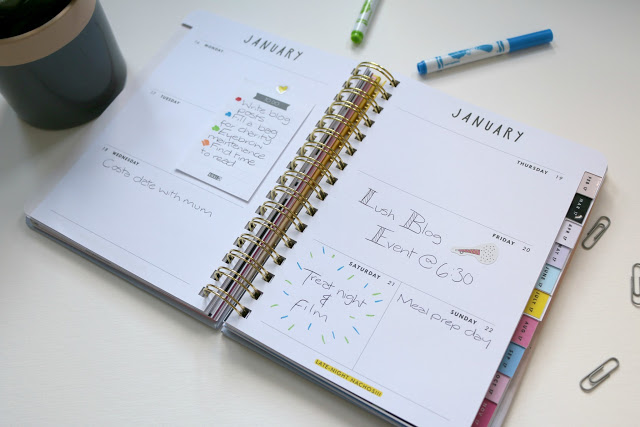 JANUARY
16 MONDAY
17 TUESDAY
Write blog
posts
Fill a bag
for charity
Eyebrow
maintenance
Find time
to read
18 WEDNESDAY
Costa date with mum
JANUARY
THURSDAY 19
Lush Blog
Event @ 6:30
FRIDAY 20
SATURDAY 21
Treat night
&
Film
LATE-NIGHT NACHOS!!!
SUNDAY 22
Meal prep day